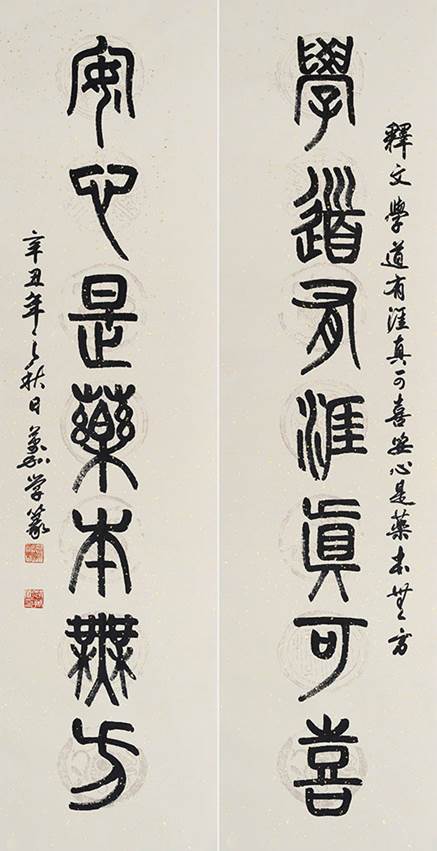 釋文學道有涯真可喜安心是藥本無方
學道有涯眞可喜
安心是藥本無方
辛丑年之秋日
学篆